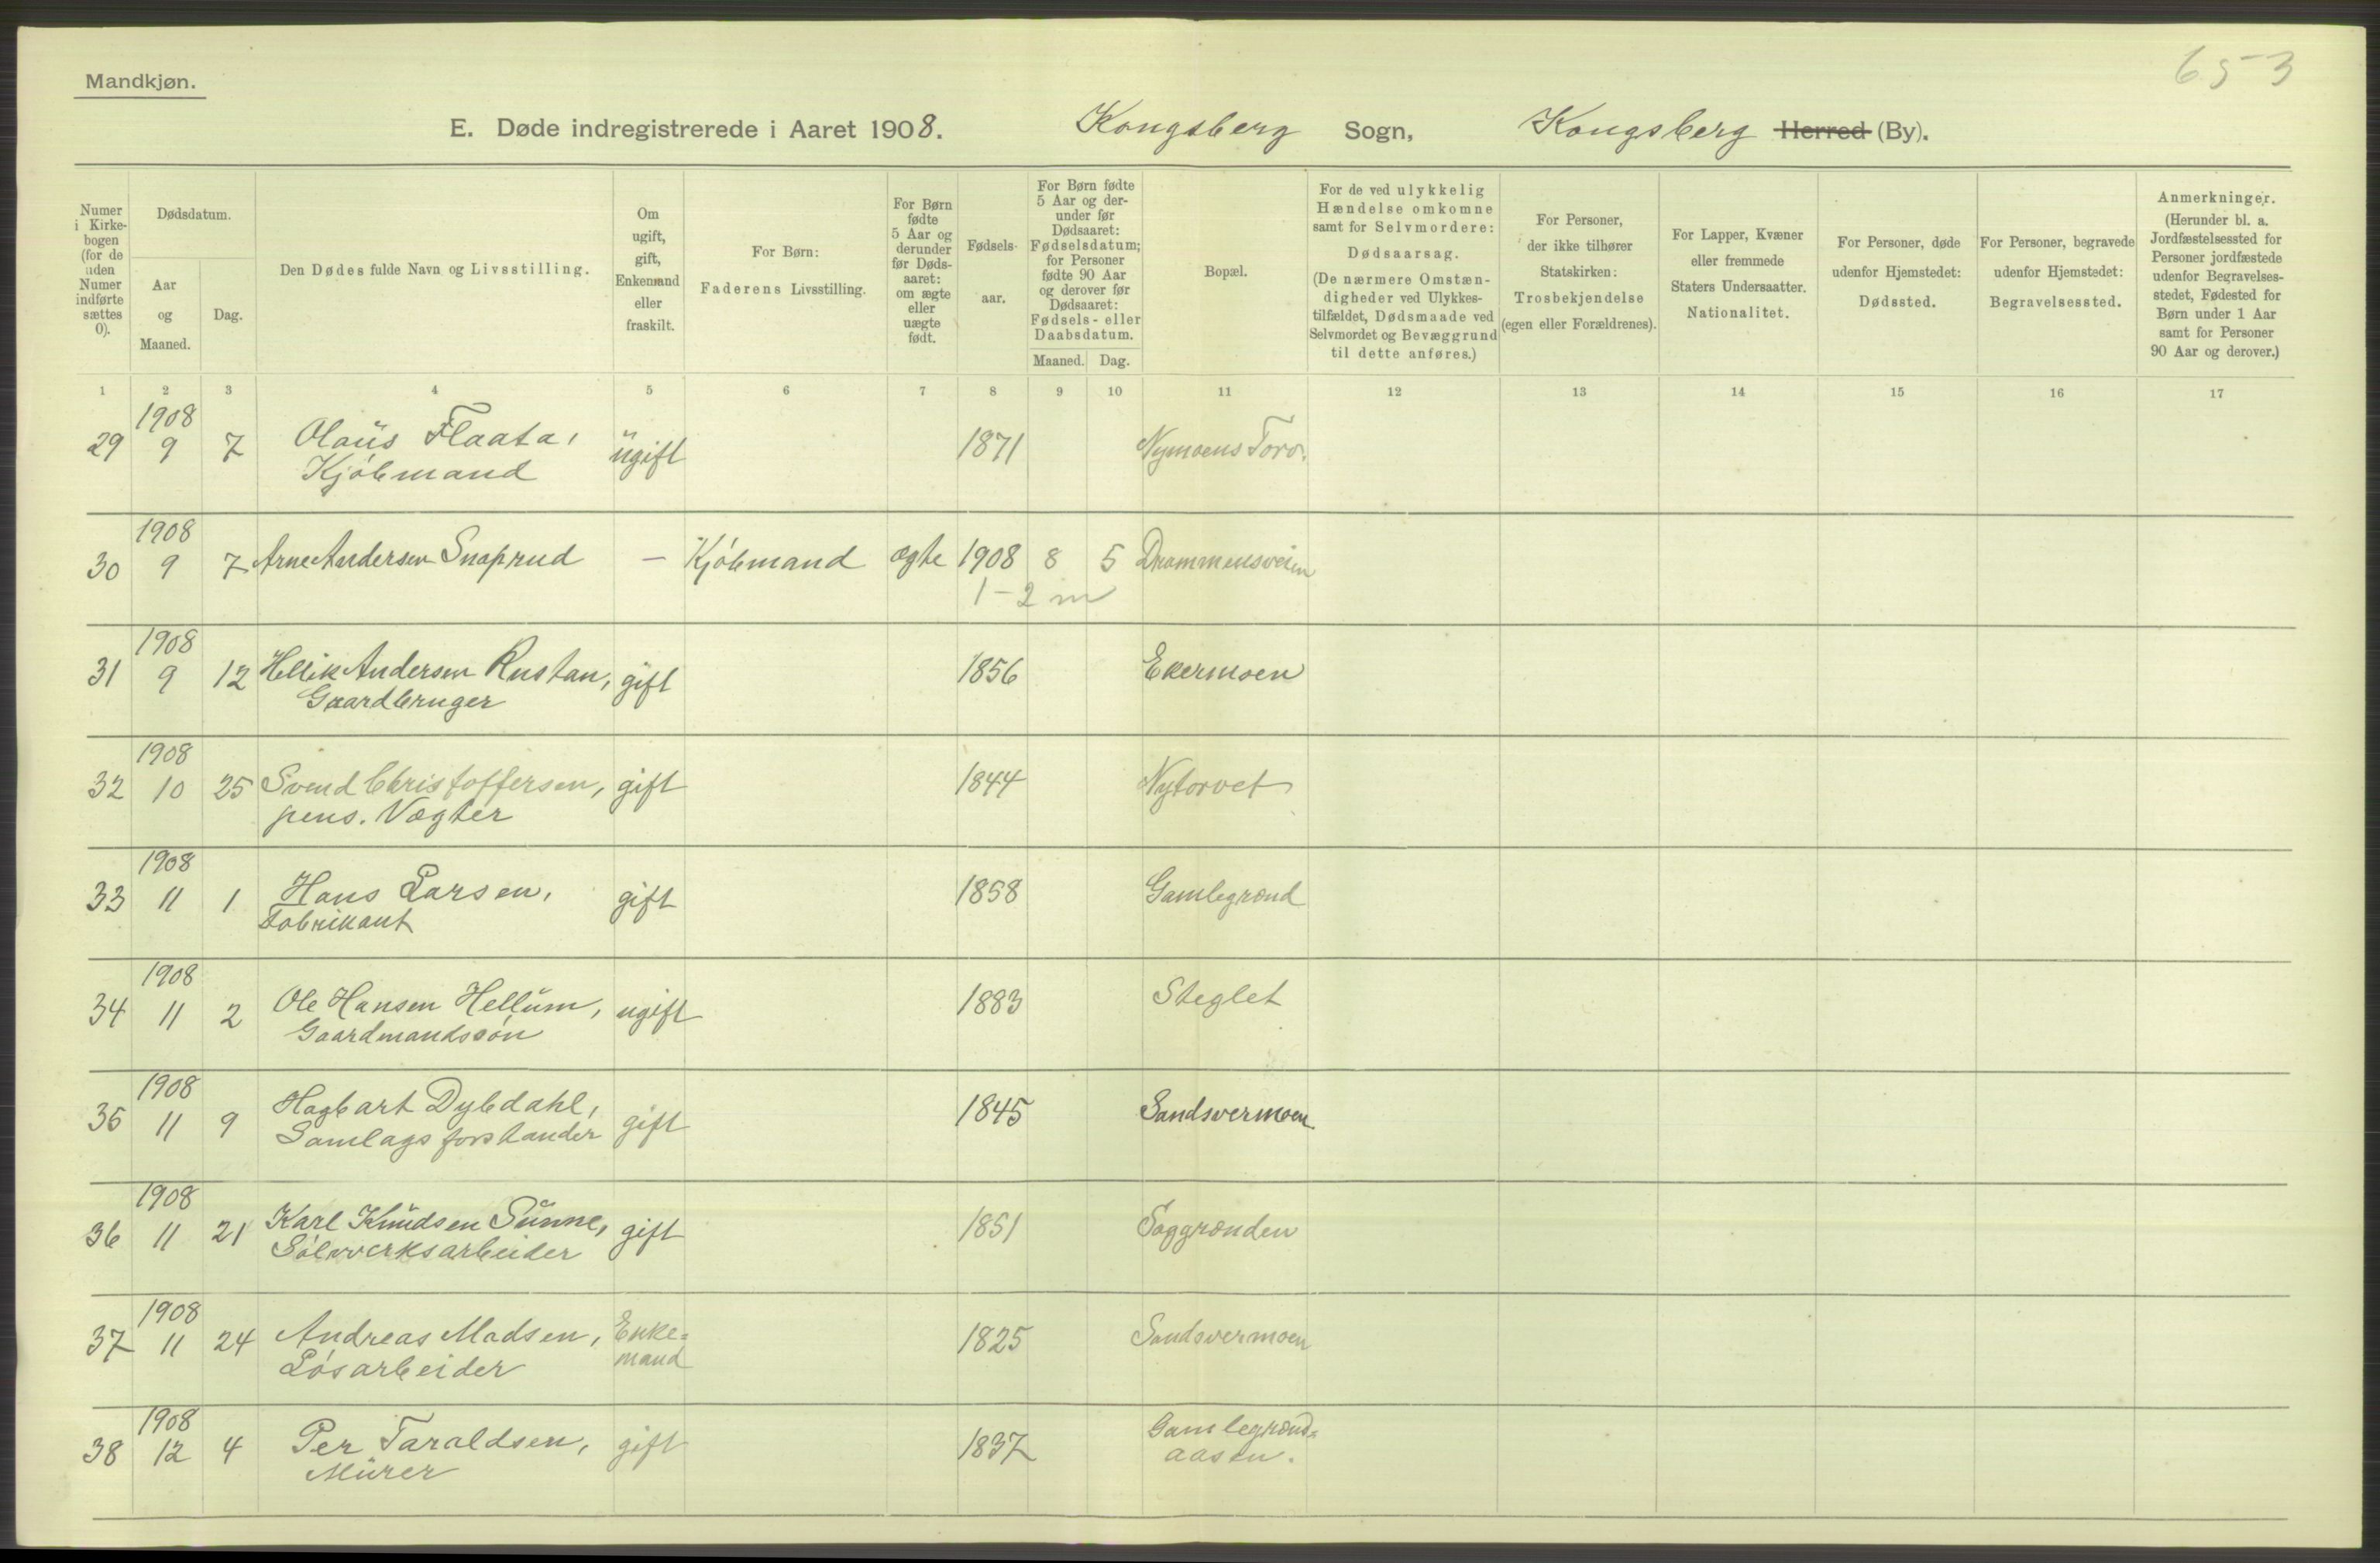 653
Mandkjøn.
E. Døde indregistrerede i Aaret 1908. Kongsberg Sogn, Kongsberg Herred (By).
Numer i Kirke-bogen (for de uden Numer indførte sættes 0).
Dødsdatum.
Aar og Maaned.
Dag.
Den Dødes fulde Navn og Livsstilling.
Om ugift, gift, Enkemand eller fraskilt.
For Børn: Faderens Livsstilling.
For Børn fødte 5 Aar og derunder før Døds-aaret: om ægte eller uægte født.
Fødsels-aar.
For Børn fødte 5 Aar og der-under før Dødsaaret: Fødselsdatum; for Personer fødte 90 Aar og derover før Dødsaaret: Fødsels- eller Daabsdatum.
Maaned. Dag.
Bopæl.
For de ved ulykkelig Hændelse omkomne samt for Selvmordere: Dødsaarsag. (De nærmere Omstæn-digheder ved Ulykkes-tilfældet, Dødsmaade ved Selvmordet og Bevæggrund til dette anføres.)
For Personer, der ikke tilhører Statskirken: Trosbekjendelse (egen eller Forældrenes).
For Lapper, Kvæner eller fremmede Staters Undersaatter. Nationalitet.
For Personer, døde udenfor Hjemstedet: Dødssted.
For Personer, begravede udenfor Hjemstedet: Begravelsessted.
Anmerkninger. (Herunder bl. a. Jordfæstelsessted for Personer jordfæstede udenfor Begravelses-stedet, Fødested for Børn under 1 Aar samt for Personer 90 Aar og derover.)
1 2 3 4 5 6 7 8 9 10 11 12 13 14 15 16 17
1908
29 9 7 Olaus Flaata, ugift 1871 Nymoens Torv.
Kjøbmand
1908
30 9 7 Arne Andersen Snaprud — Kjøbmand ægte 1908 8 5 Drammensveien
1-2 m
1908
31 9 12 Hellik Andersen Rustan, gift 1856 Ekermoen
Gaardbruger
1908
32 10 25 Svend Christoffersen, gift 1844 Nytorvet
pens. Vægter
1908
33 11 1 Hans Larsen, gift 1858 Gamlegrænd
Fabrikant
1908
34 11 2 Ole Hansen Hellum, ugift 1883 Steglet
Gaardmandssøn
1908
35 11 9 Hagbart Dybdahl, gift 1845 Sandsvermoen
Samlagsforstander
1908
36 11 21 Karl Knudsen Sunne, gift 1851 Saggrænden
Sølvverksarbeider
1908
37 11 24 Andreas Madsen, Enke= 1825 Sandsvermoen
Løsarbeider mand
1908
38 12 4 Per Taraldsen, gift 1837 Gamlegrænds=
Murer aasen.